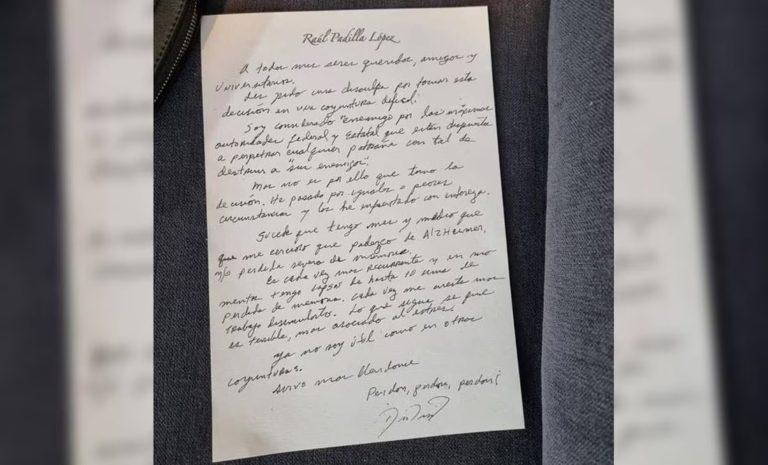 Raúl Padilla López
A todos mis seres queridos, amigos y
Universitarios.
Les pido una disculpa por tomar esta
decisión en una coyuntura dificil.
Soy considerado "enemigo por las máximas
autoridades federal y estatal que están dispuestas
a perpetrar cualquier patraña con tal de
destruir a "sus enemigos".
Mas no es por ello que tomo la
decisión. He pasado por iguales o peores
circunstancias y las he enfrentado con entereza.
Sucede que tengo mas y
que me cercioro que padezco de Alzheimer,
y/o perdida severa de memoria.
Es cada vez mas recurrente y en mi
mente tengo lapsos de hasta 10 de
perdida de memoria. Cada vez me cuesta mas
trabajo disimularlos. Lo que sigue, se que
es terrible, mas asociado al estres.
Ya no soy útil como en otras
coyunturas.
mas
Perdon, perdon, perdon!